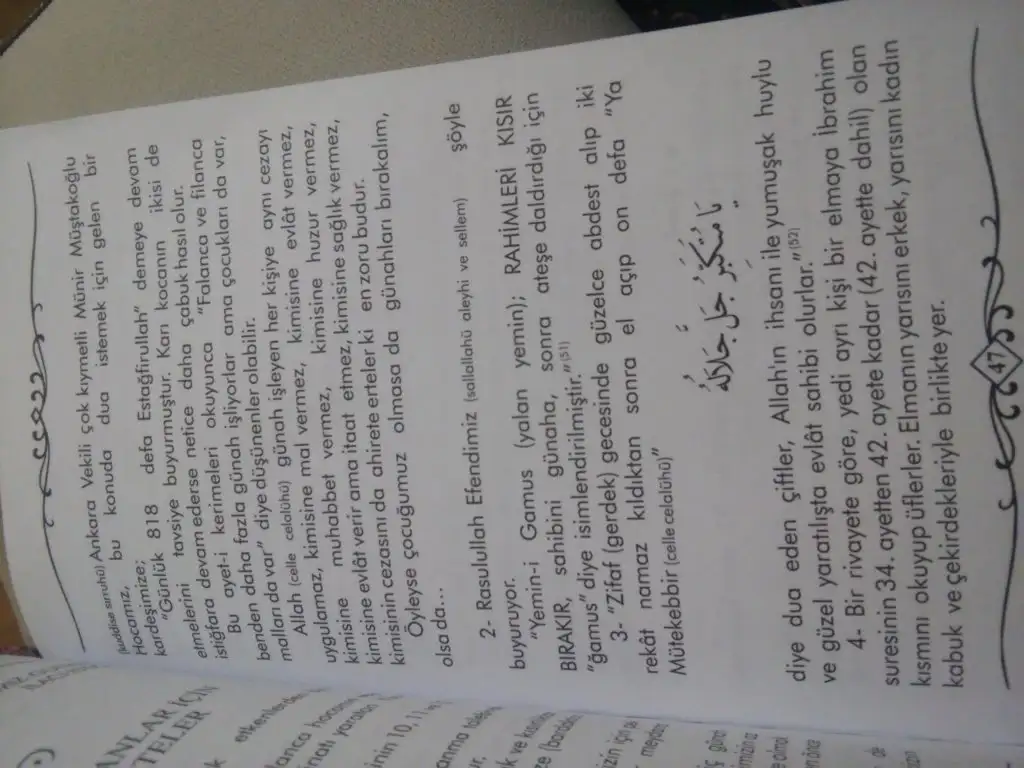 ANLAR İÇİN
TELER
etkenlerde
(kuddise sirruhû) Ankara Vekili çok kıymetli Münir Müştakoğlu
Hocamız, bu konuda dua istemek için gelen bir
kardeşimize;
"Günlük 818 defa Estağfirullah" demeye devam
etmelerini tavsiye buyurmuştur. Karı kocanın ikisi de
istiğfara devam ederse netice daha çabuk hasıl olur.
Bu ayet-i kerimeleri okuyunca "Falanca ve filanca
benden daha fazla günah işliyorlar ama çocukları da var,
malları da var" diye düşünenler olabilir.
Allah (celle celalühü) günah işleyen her kişiye aynı cezayı
uygulamaz, kimisine mal vermez, kimisine evlât vermez,
kimisine muhabbet vermez, kimisine huzur vermez,
kimisine evlât verir ama itaat etmez, kimisine sağlık vermez,
kimisinin cezasını da ahirete erteler ki en zoru budur.
Öyleyse çocuğumuz olmasa da günahları bırakalım,
olsa da...
2- Rasulullah Efendimiz (sallallahü aleyhi ve sellem) şöyle
buyuruyor.
"Yemin-i Gamus (yalan yemin); RAHİMLERİ KISIR
BIRAKIR, sahibini günaha, sonra ateşe daldırdığı için
"ğamus" diye isimlendirilmiştir."(51)
3- "Zifaf (gerdek) gecesinde güzelce abdest alıp iki
rekât namaz kıldıktan sonra el açıp on defa "Ya
Mütekebbir (celle celalühü)"
يَا مُتَكَبِّرُ جَلَّ جَلَالُهُ
diye dua eden çiftler, Allahın ihsanı ile yumuşak huylu
ve güzel yaratılışta evlât sahibi olurlar."(52)
4- Bir rivayete göre, yedi ayrı kişi bir elmaya İbrahim
suresinin 34. ayetten 42. ayete kadar (42. ayette dahil) olan
kısmını okuyup üflerler. Elmanın yarısını erkek, yarısını kadın
kabuk ve çekirdekleriyle birlikte yer.
47